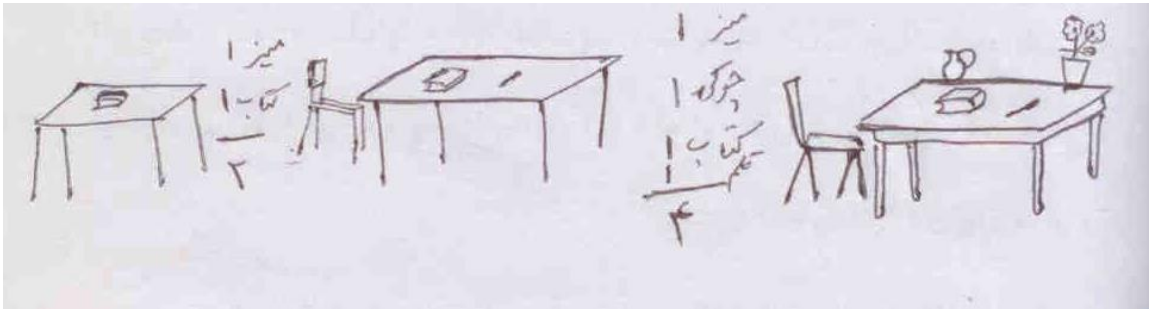 میز ۱
کتاب ۱
۲
میز ۱
چوکی ۱
کتاب ۱
قلم ۱
۴